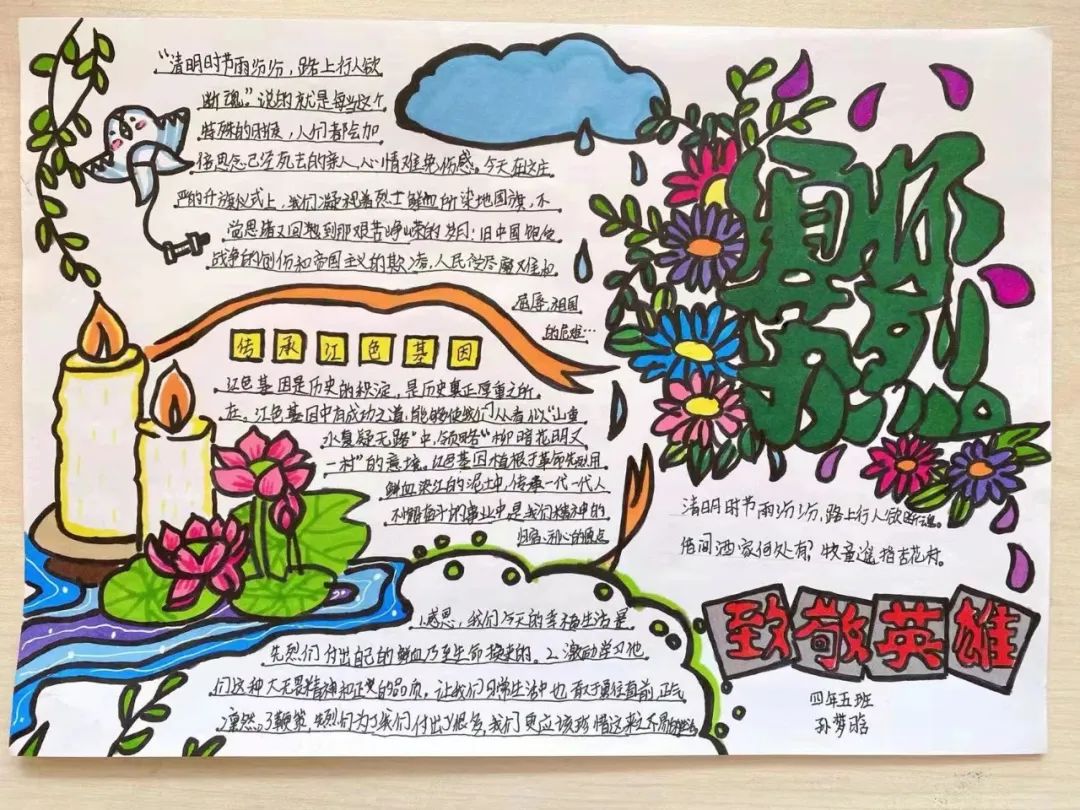 “清明时节雨纷纷，路上行人欲
断魂。”说的就是每当这个
特殊的时候，人们都会加
倍思念已经死去的亲人，心情难免伤感。今天在这庄
严的升旗仪式上，我们凝视着烈士鲜血所染地国旗，不
觉思绪又回到那艰苦峥嵘的岁月：旧中国饱受
战争的创伤和帝国主义的欺凌，人民受尽磨难和
屈辱，祖国
的危难…
缅怀
先烈
传承红色基因
红色基因是历史的积淀，是历史真正厚重之所
在。红色基因中有成功之道，能够使我们从看似“山重
水复疑无路”中，领略“柳暗花明又
一村”的意境。红色基因植根于革命先烈用
鲜血染红的泥土中，传承一代一代人
不懈奋斗的事业中，是我们精神的
归宿、初心的原点
清明时节雨纷纷，路上行人欲断魂。
借问酒家何处有？牧童遥指杏花村。
致敬英雄
四年五班
孙梦晗
1.感恩，我们今天的幸福生活是
先烈们付出自己的鲜血乃至生命换来的。2.激励学习他
们这种大无畏精神和正义的品质，让我们日常生活中也敢于勇往直前，正气
凛然。3.鞭策，先烈们为了我们付出了很多，我们更应该珍惜这来之不易的生活